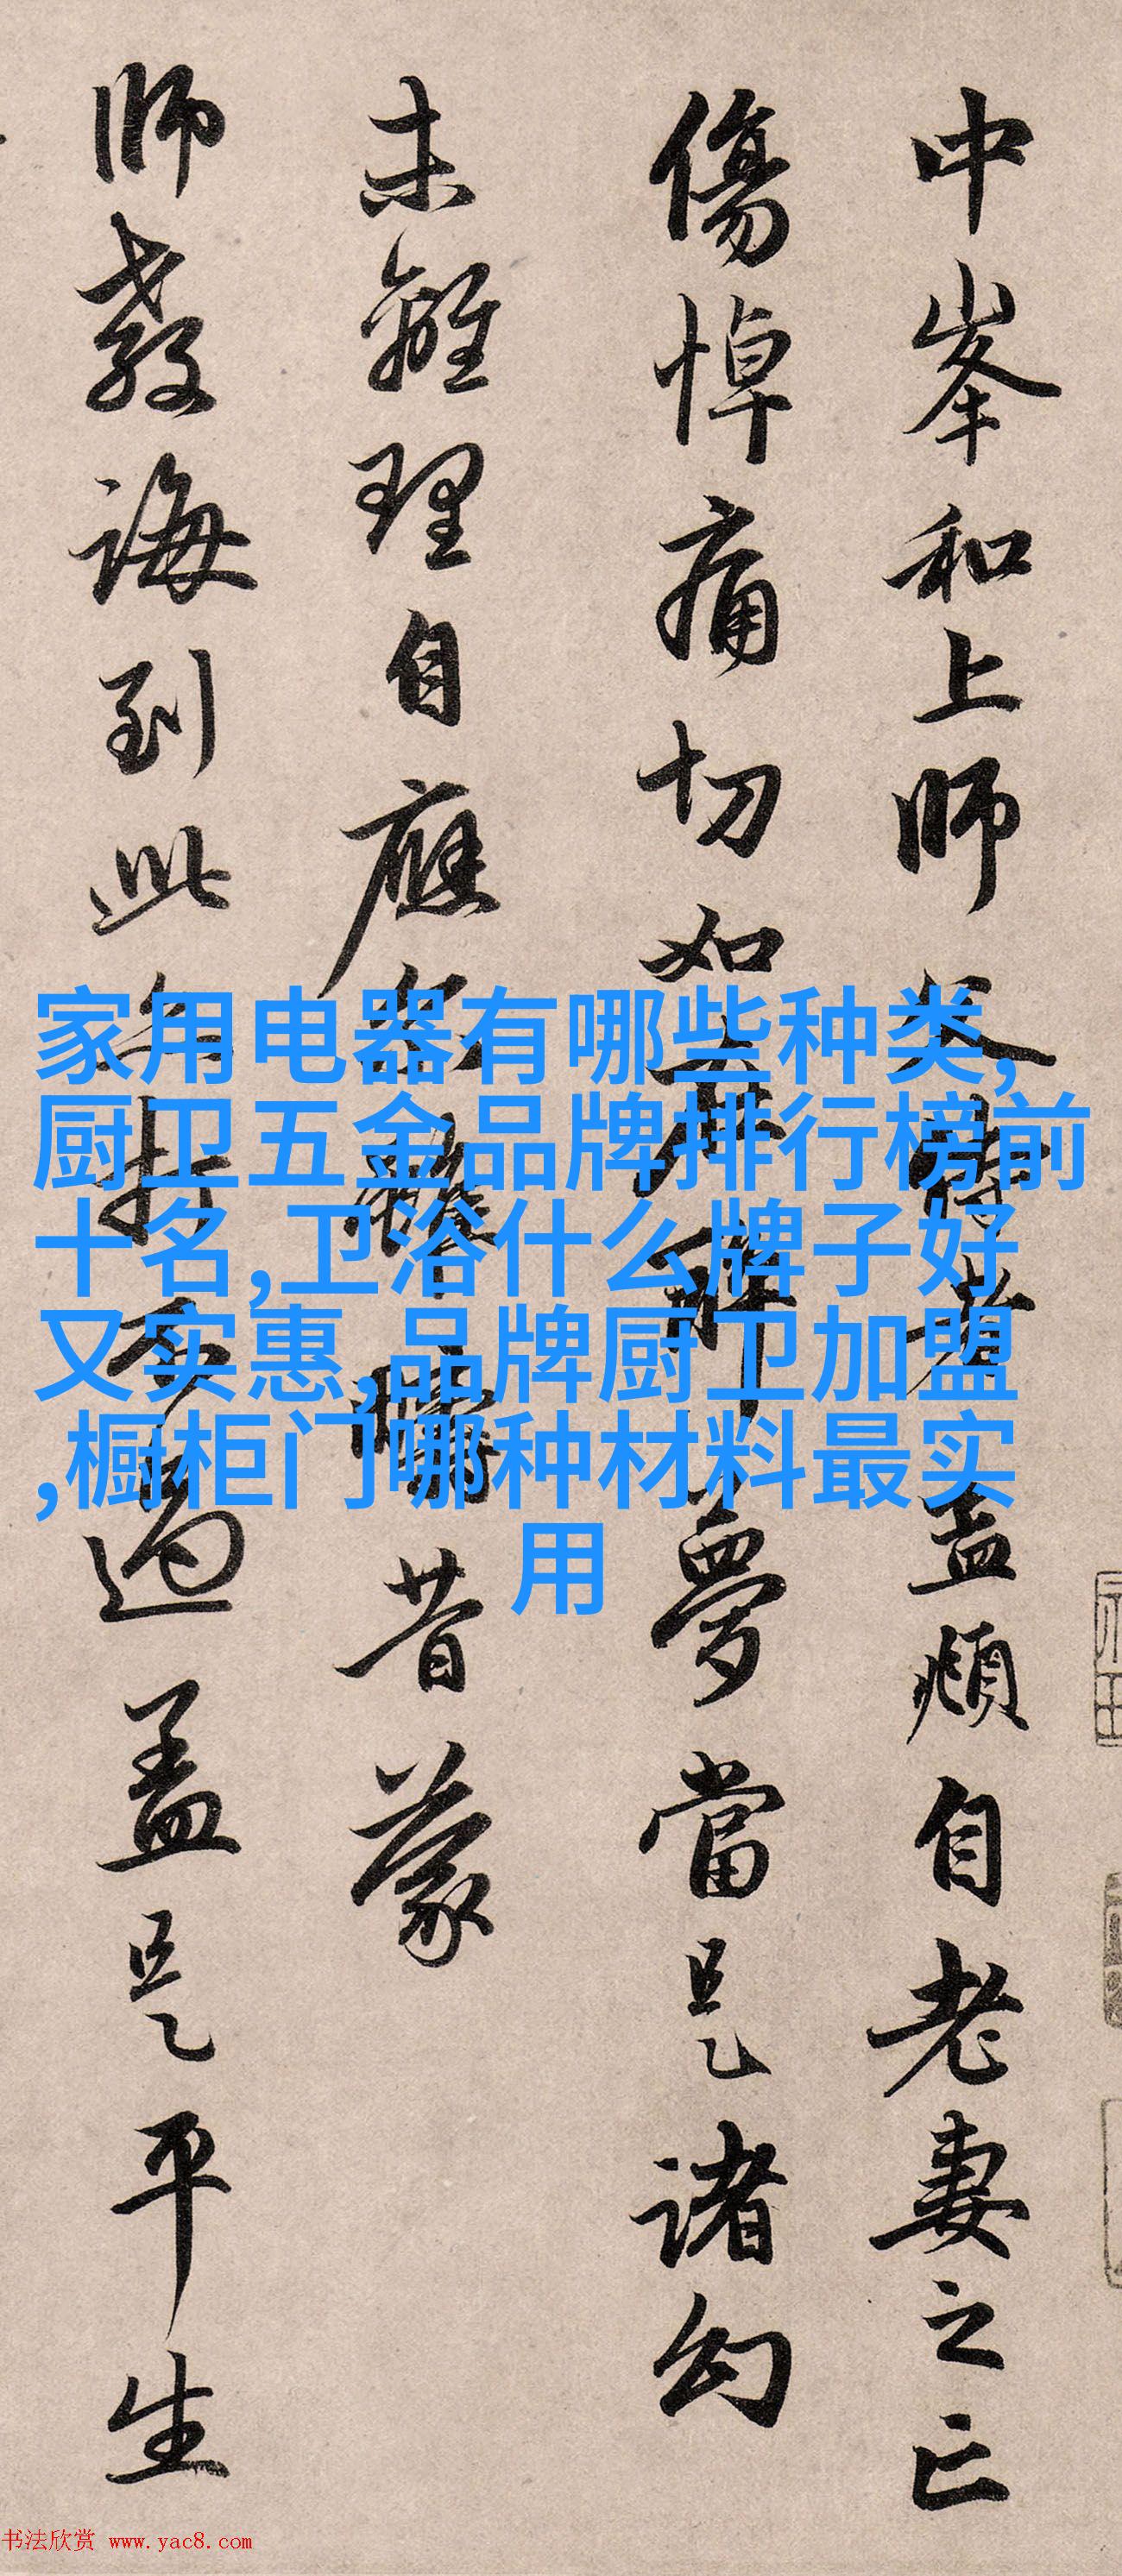 中峯和上師父侍者孟頫自老妻之亡
傷悼痛切如在醉夢當是諸幻
未離理自應尔雖畴昔蒙
師教誨到此亦打不過蓋是平生
家用电器有哪些种类,
厨卫五金品牌排行榜前
十名,卫浴什么牌子好
又实惠,品牌厨卫加盟
,橱柜门哪种材料最实
用
书法欣赏 www.yac8.com